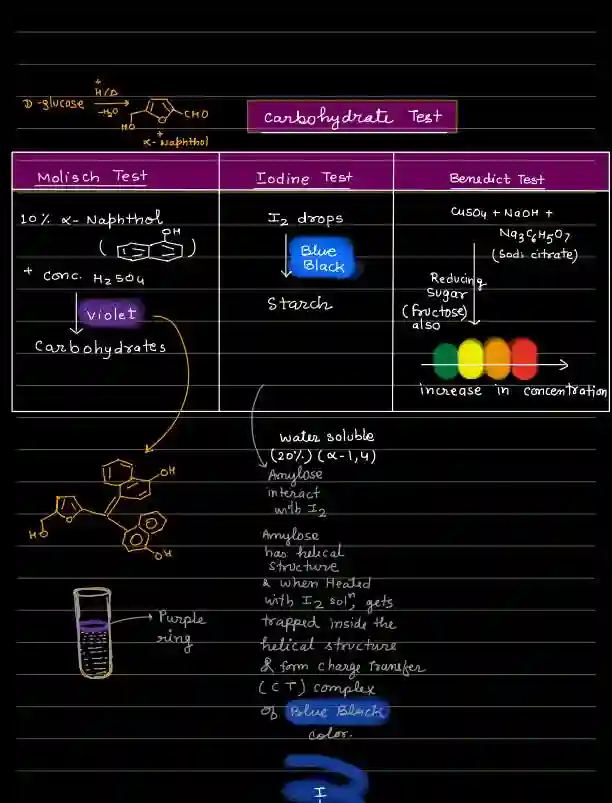 D-glucose H⁺/Δ -H₂O HO CHO
+
α-Naphthol
Carbohydrate Test
Molisch Test
10% α-Naphthol
( OH )
+ Conc. H₂SO₄
Violet
Carbohydrates
Iodine Test
I₂ drops
Blue
Black
Starch
Benedict Test
CuSO₄ + NaOH +
Na₃C₆H₅O₇
(Sodi citrate)
Reducing
Sugar
(fructose)
also
increase in concentration
OH
HO
OH
Purple
ring
water soluble
(20%) (α-1,4)
Amylose
interact
with I₂
Amylose
has helical
structure
& when Heated
with I₂ solⁿ, gets
trapped inside the
helical structure
& form charge Transfer
(CT) complex
of Blue Black
color.
I